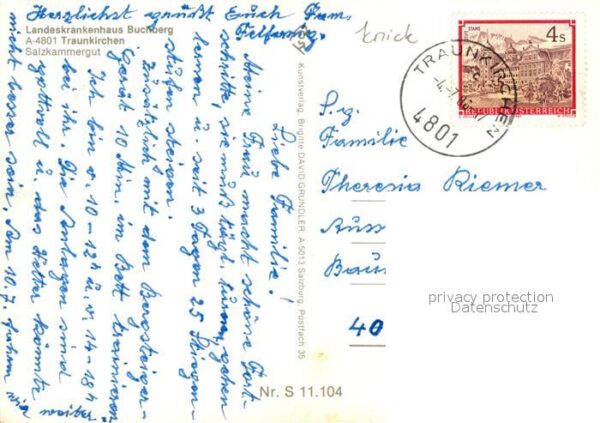 Herzlichst grüßt Euch Fam.
Felfernig.
Landeskrankenhaus Buchberg
A-4801 Traunkirchen
Salzkammergut
Liebe Familie!
Meine Frau macht schöne Fort-
schritte, sie muß tägl. turnen, gehen
lernen u. seit 3 Tagen 25 Stiegen-
stufen steigen.
Zusätzlich mit dem Bergsteiger-
Gerät 10 Min. im Bett trainieren.
Ich bin v. 10-12h u. v. 14-18h
bei ihr. Die Anlagen sind
prachtvoll u. das Wetter könnte
nicht besser sein. Am 10.7. fahren wir
weiter
Kunstverlag, Brigitte DAVID-GRÜNDLER, A 5013 Salzburg, Postfach 35
Nr. S 11.104
knick
STAMS
4s
REPUBLIK ÖSTERREICH
TRAUNKIRCHEN
4801
Familie
Theresia Riemer
40
privacy protection
Datenschutz